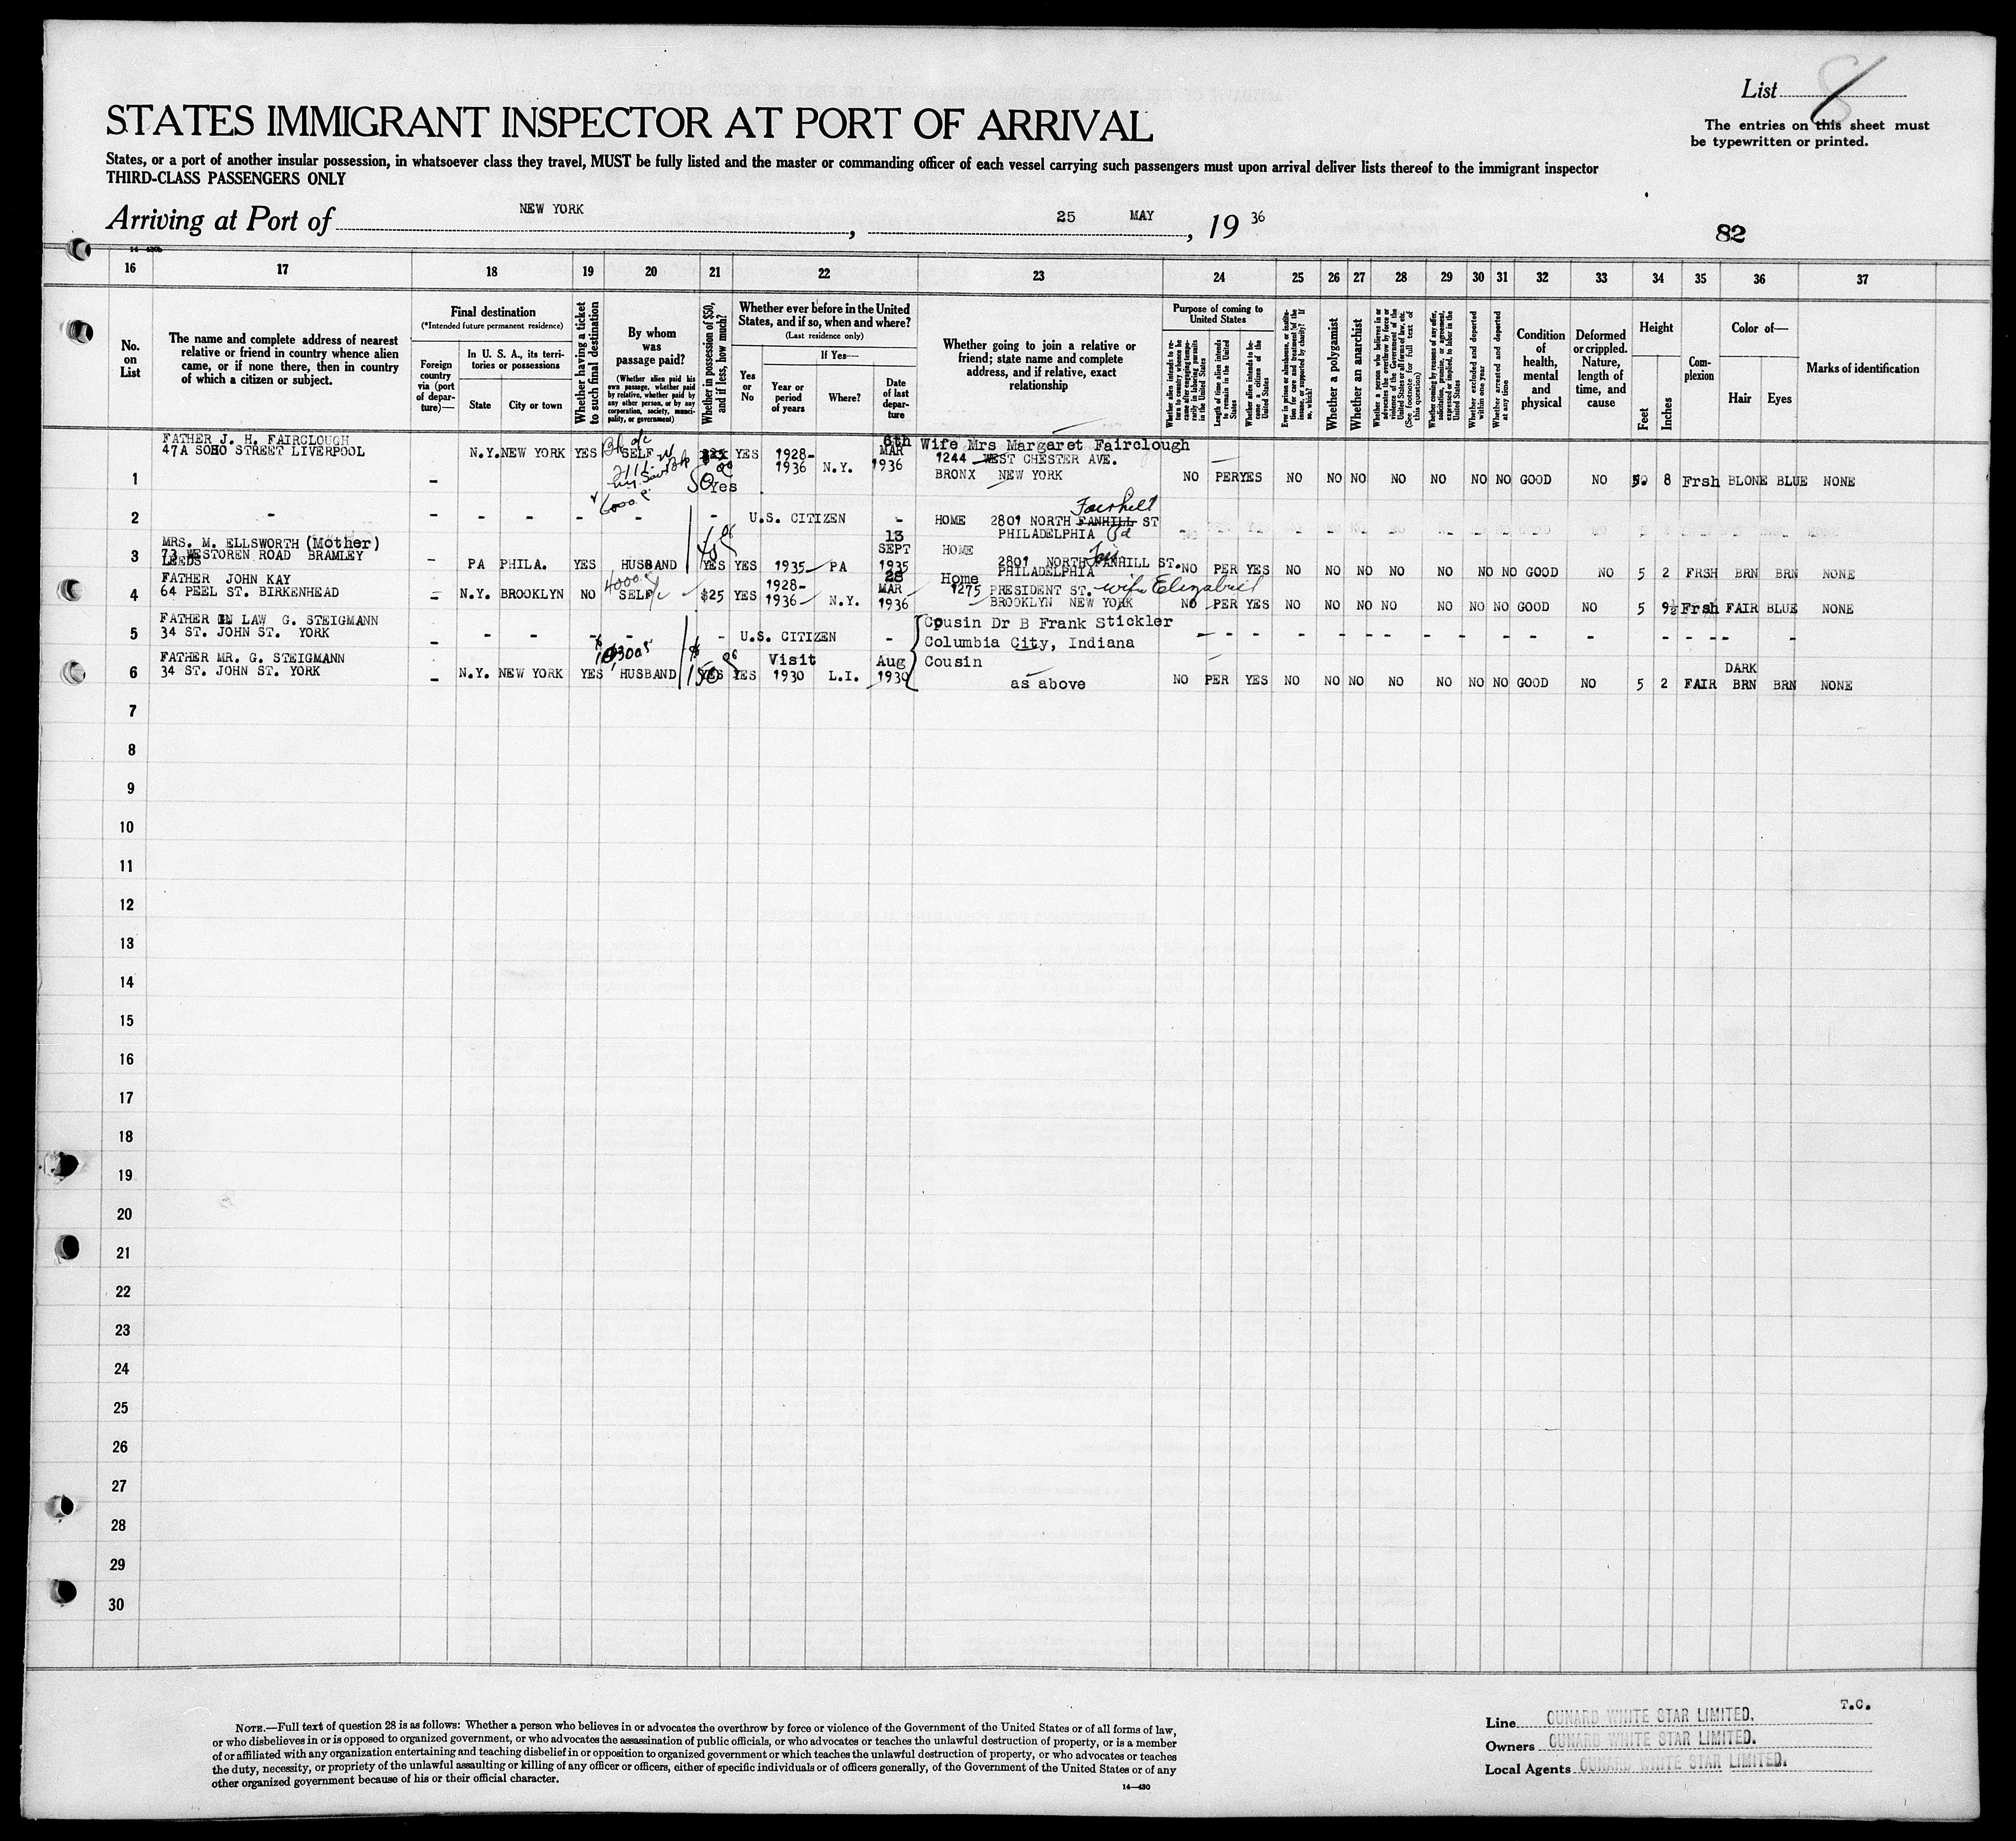 List 8
The entries on this sheet must
be typewritten or printed.
STATES IMMIGRANT INSPECTOR AT PORT OF ARRIVAL
States, or a port of another insular possession, in whatsoever class they travel, MUST be fully listed and the master or commanding officer of each vessel carrying such passengers must upon arrival deliver lists thereof to the immigrant inspector
THIRD-CLASS PASSENGERS ONLY
Arriving at Port of NEW YORK, 25 MAY, 1936
82
16 17 18 19 20 21 22 23 24 25 26 27 28 29 30 31 32 33 34 35 36 37
No. on List
The name and complete address of nearest relative or friend in country whence alien came, or if none there, then in country of which a citizen or subject.
Final destination
(*Intended future permanent residence)
Foreign country via (port of departure)—
In U. S. A., its territories or possessions
State
City or town
Whether having a ticket to such final destination
By whom was passage paid?
(Whether alien paid his own passage, whether paid by relative, whether paid by any other person, or by any corporation, society, municipality, or government)
Whether in possession of $50, and if less, how much?
Whether ever before in the United States, and if so, when and where?
(Last residence only)
Yes or No
If Yes—
Year or period of years
Where?
Date of last departure
Whether going to join a relative or friend; state name and complete address, and if relative, exact relationship
Purpose of coming to United States
Whether alien intends to return to country whence he came after engaging temporarily in laboring pursuits in the United States
Length of time alien intends to remain in the United States
Whether alien intends to become a citizen of the United States
Ever in prison or almshouse, or institution for care and treatment of the insane, or supported by charity? If so, which?
Whether a polygamist
Whether an anarchist
Whether a person who believes in or advocates the overthrow by force or violence of the Government of the United States or all forms of law, etc. (See footnote for full text of this question)
Whether coming by reasons of any offer, solicitation, promise, or agreement, expressed or implied, to labor in the United States
Whether excluded and deported within one year
Whether arrested and deported at any time
Condition of health, mental and physical
Deformed or crippled. Nature, length of time, and cause
Height
Feet
Inches
Complexion
Color of—
Hair
Eyes
Marks of identification
1 FATHER J. H. FAIRCLOUGH
47A SOHO STREET LIVERPOOL – N.Y. NEW YORK YES SELF 50 Yes YES 1928-1936 N.Y. 6th MAR 1936 Wife Mrs Margaret Fairclough
1244 WEST CHESTER AVE.
BRONX NEW YORK NO PER YES NO NO NO NO NO NO NO GOOD NO 5 8 Frsh BLONE BLUE NONE
2 - - - - - - - U.S. CITIZEN - HOME 2801 NORTH FANHILL ST Fairhill
PHILADELPHIA Pa
3 MRS. M. ELLSWORTH (Mother)
73 WESTOREN ROAD BRAMLEY
LEEDS – PA PHILA. YES HUSBAND YES YES 1935 PA 13 SEPT 1935 HOME 2801 NORTH FANHILL ST. Fair
PHILADELPHIA NO PER YES NO NO NO NO NO NO NO GOOD NO 5 2 FRSH BRN BRN NONE
4 FATHER JOHN KAY
64 PEEL ST. BIRKENHEAD – N.Y. BROOKLYN NO SELF $25 YES 1928-1936 N.Y. 28 MAR 1936 Home 1275 PRESIDENT ST. wife Elizabeth
BROOKLYN NEW YORK NO PER YES NO NO NO NO NO NO NO GOOD NO 5 9½ Frsh FAIR BLUE NONE
5 FATHER IN LAW G. STEIGMANN
34 ST. JOHN ST. YORK - - - - - - U.S. CITIZEN - Cousin Dr B Frank Stickler
Columbia City, Indiana
6 FATHER MR. G. STEIGMANN
34 ST. JOHN ST. YORK – N.Y. NEW YORK YES HUSBAND YES 150 YES Visit 1930 L.I. Aug 1930 Cousin
as above NO PER YES NO NO NO NO NO NO NO GOOD NO 5 2 FAIR DARK BRN BRN NONE
7
8
9
10
11
12
13
14
15
16
17
18
19
20
21
22
23
24
25
26
27
28
29
30
NOTE.—Full text of question 28 is as follows: Whether a person who believes in or advocates the overthrow by force or violence of the Government of the United States or of all forms of law,
or who disbelieves in or is opposed to organized government, or who advocates the assassination of public officials, or who advocates or teaches the unlawful destruction of property, or is a member
of or affiliated with any organization entertaining and teaching disbelief in or opposition to organized government or which teaches the unlawful destruction of property, or who advocates or teaches
the duty, necessity, or propriety of the unlawful assaulting or killing of any officer or officers, either of specific individuals or of officers generally, of the Government of the United States or of any
other organized government because of his or their official character.
14—430
T.C.
Line CUNARD WHITE STAR LIMITED.
Owners CUNARD WHITE STAR LIMITED.
Local Agents CUNARD WHITE STAR LIMITED.